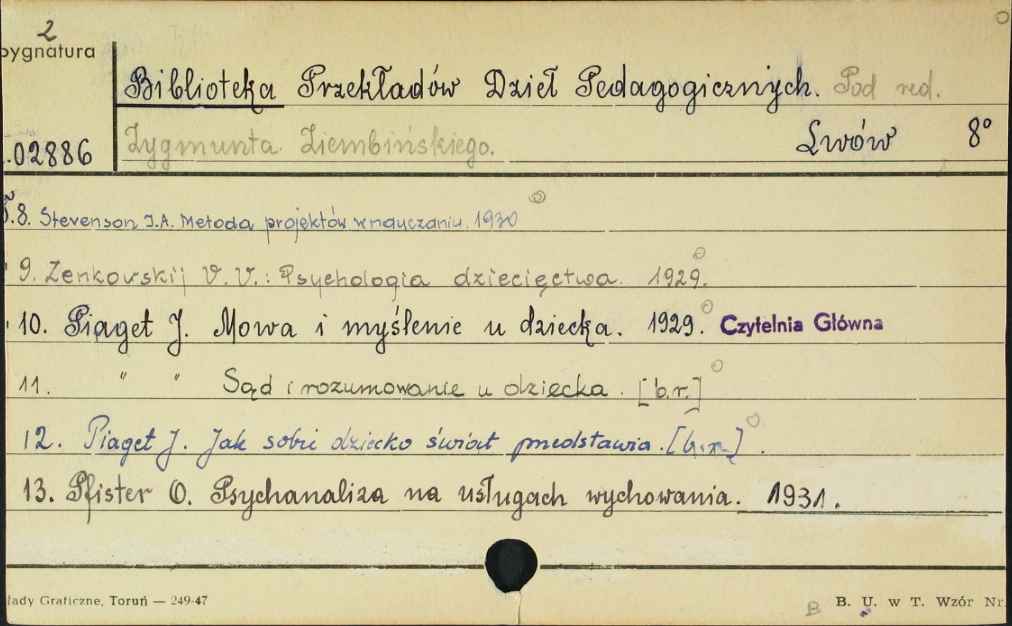 2
Sygnatura
Biblioteka Przekładów Dzieł Pedagogicznych. Pod red.
Zygmunta Ziembińskiego. Lwów 8°
.02886
T.8. Stevenson J.A. Metoda projektów w nauczaniu. 1930
9. Zenkovskij V. V.: Psychologia dziecięctwa. 1929.
10. Piaget J. Mowa i myślenie u dziecka. 1929. Czytelnia Główna
11. " " Sąd i rozumowanie u dziecka. [b.r.]
12. Piaget J. Jak sobie dziecko świat przedstawia. [b.r.].
13. Pfister O. Psychanaliza na usługach wychowania. 1931.
łady Graficzne, Toruń — 249-47
B B. U. w T. Wzór Nr.